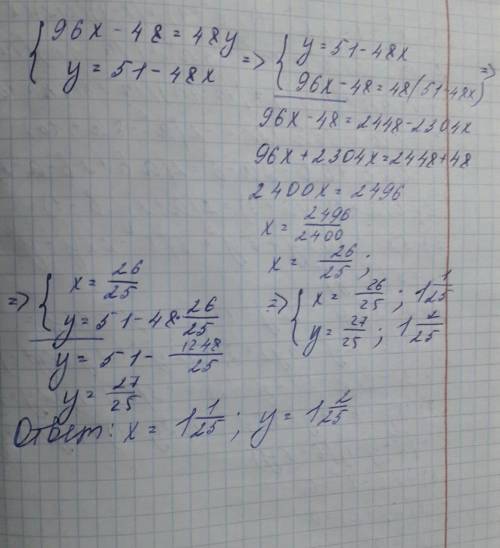 { 96x - 48 = 48y
y = 51 - 48x =>
{ y = 51 - 48x
96x - 48 = 48(51 - 48x) =>
96x - 48 = 2448 - 2304x
96x + 2304x = 2448 + 48
2400x = 2496
x = 2496/2400
x = 26/25;
=> { x = 26/25
y = 51 - 48 · 26/25
y = 51 - 1248/25
y = 27/25
=> { x = 26/25; 1 1/25
y = 27/25; 1 2/25
Ответ: x = 1 1/25; y = 1 2/25